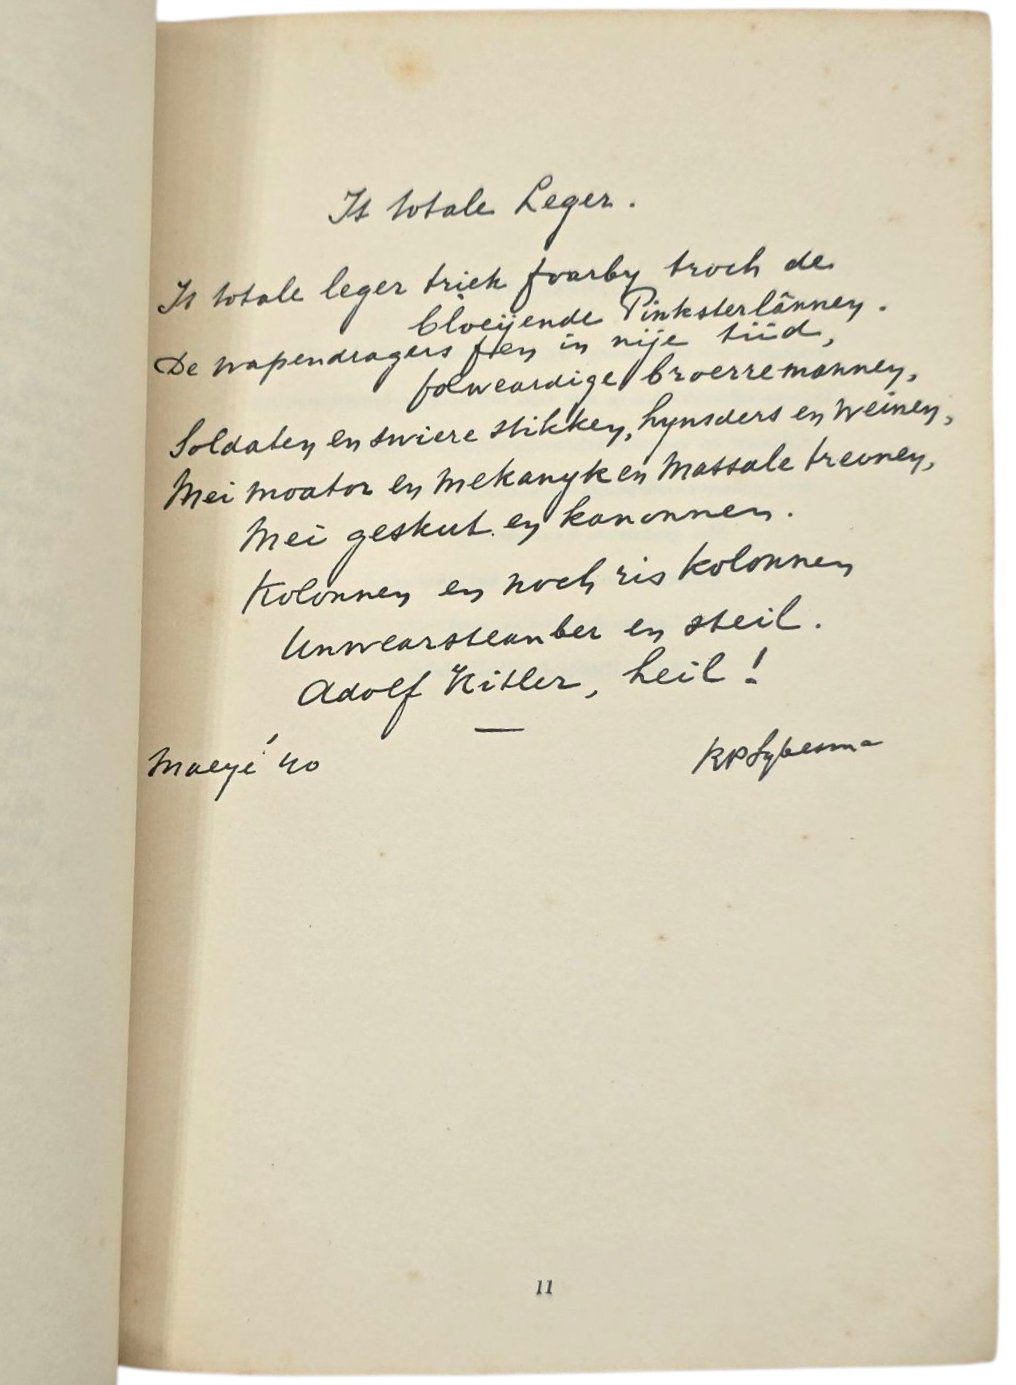 It totale Leger.
It totale leger triek foarby troch de
bloeijende Pinksterlânnen.
De wapendragers fen in nije tiid,
folweardige broerremannen,
Soldaten en swiere stikken, hynsders en weinen,
Mei moator en mekanyk en massale treonen,
Mei geskut en kanonnen.
Kolonnen en noch ris kolonnen
Unwearsteanber en steil.
Adolf Hitler, heil!
Maeije '40
RPSybesma
11